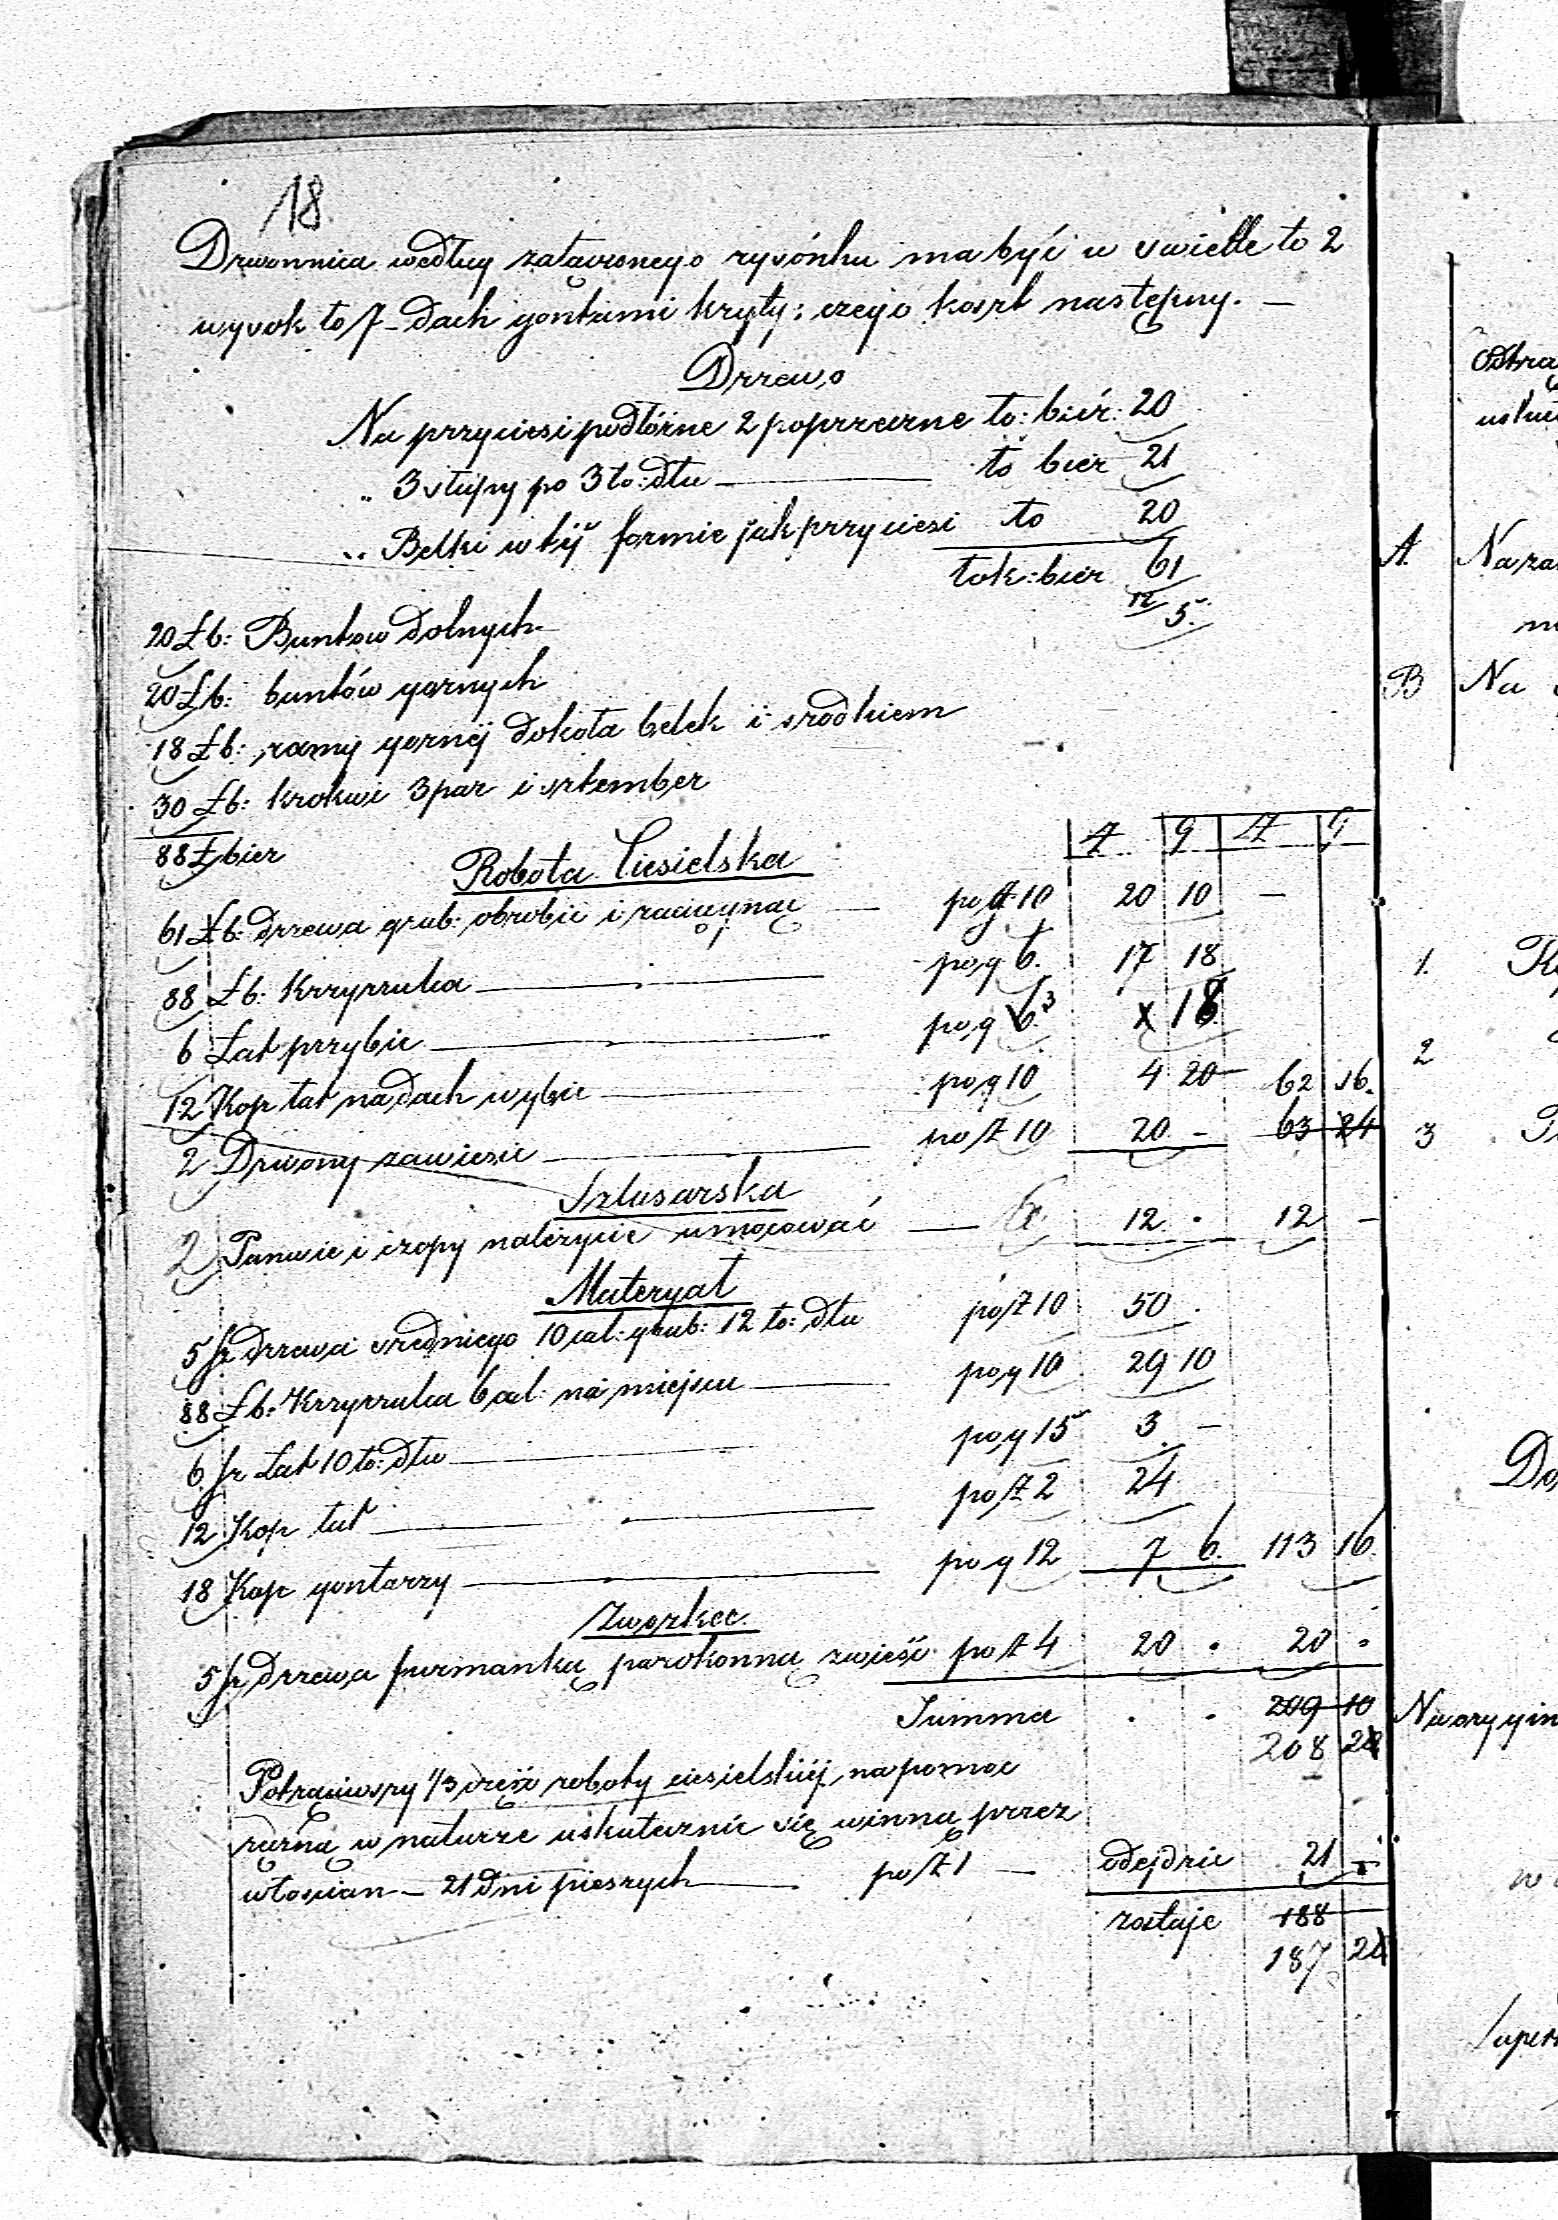 18.
Dzwonnica według załączonego rysónku ma być w swietle to 2
wysok to 7 – dach gontami kryty; czego koszt następny. —
Drzewo
Na przyciesi podłóżne 2 poprzeczne to: bież: 20
„ 3 stupy po 3 to: dłu — to bież 21
„ Belki w tÿ formie jak przyciesi to 20
łok: bież 61
12 5.
20 Łb: Buntow dolnych
20 Łb: buntów gornych
18 Łb: ramy gornéj dokoła belek i srodkiem
30 Łb: krokwi 3 par i sztember
88 Ł bież
Robota Ciesielska
Zł g Zł g
61 Łb: drzewa grub: obrobić i zaciągnąć — po g 10 20 10 —
88 Łb: Krzyzulca — po g 6. 17 18
6 Łat przybić — po g 6. 3 x 18
12 Kop łat na dach wybić — po g 10 4 20 62 16.
2 Dzwony zawiesić — po Zł 10 20 – 63 24
Szlusarska
2 Panwie i czopy należycie umocować — 6 12 . 12 –
Materyał
5 sz drzewa sredniego 10 cal: grub: 12 to: dłu po Zł 10 50 .
88 Łb: Krzyzulca 6 cal: na miejscu — po g 10 29 10
6 sz Łat 10 to: dłu — po g 15 3 –
12 Kop łat — po Zł 2 24
18 Kop gontarzy — po g 12 7 6. 113 16.
Zwozka
5 sz drzewa furmanką parokonną zwieść po Zł 4 20 . 20 .
Summa . . 209 10
208 22
Potrąciwszy 1/3 część roboty ciesielskiéj, na pomoc
ręczną w naturze uskutecznić się winną przez
włościan – 21 dni pieszych — po Zł 1 — odejdzie 21
zostaje 188
187 22
Odtra
uskut
A. Na za
B Na
1.
2
3
Do
Na orygin